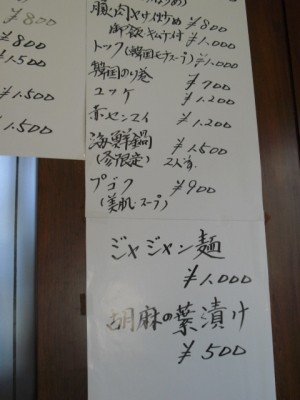 ¥800
¥800
¥1.500
1.500
腹肉ヤサイ炒め ¥800
御飯 キムチ付 ¥1,000
トック(韓国モチスープ) ¥1,000
韓国のり巻 ¥700
ユッケ ¥1.200
赤センマイ ¥1.200
海鮮鍋 ¥1,500
(冬限定) 2人ず
プゴク ¥900
(美肌スープ)
ジャジャン麺
¥1.000
胡麻の葉漬け
¥500